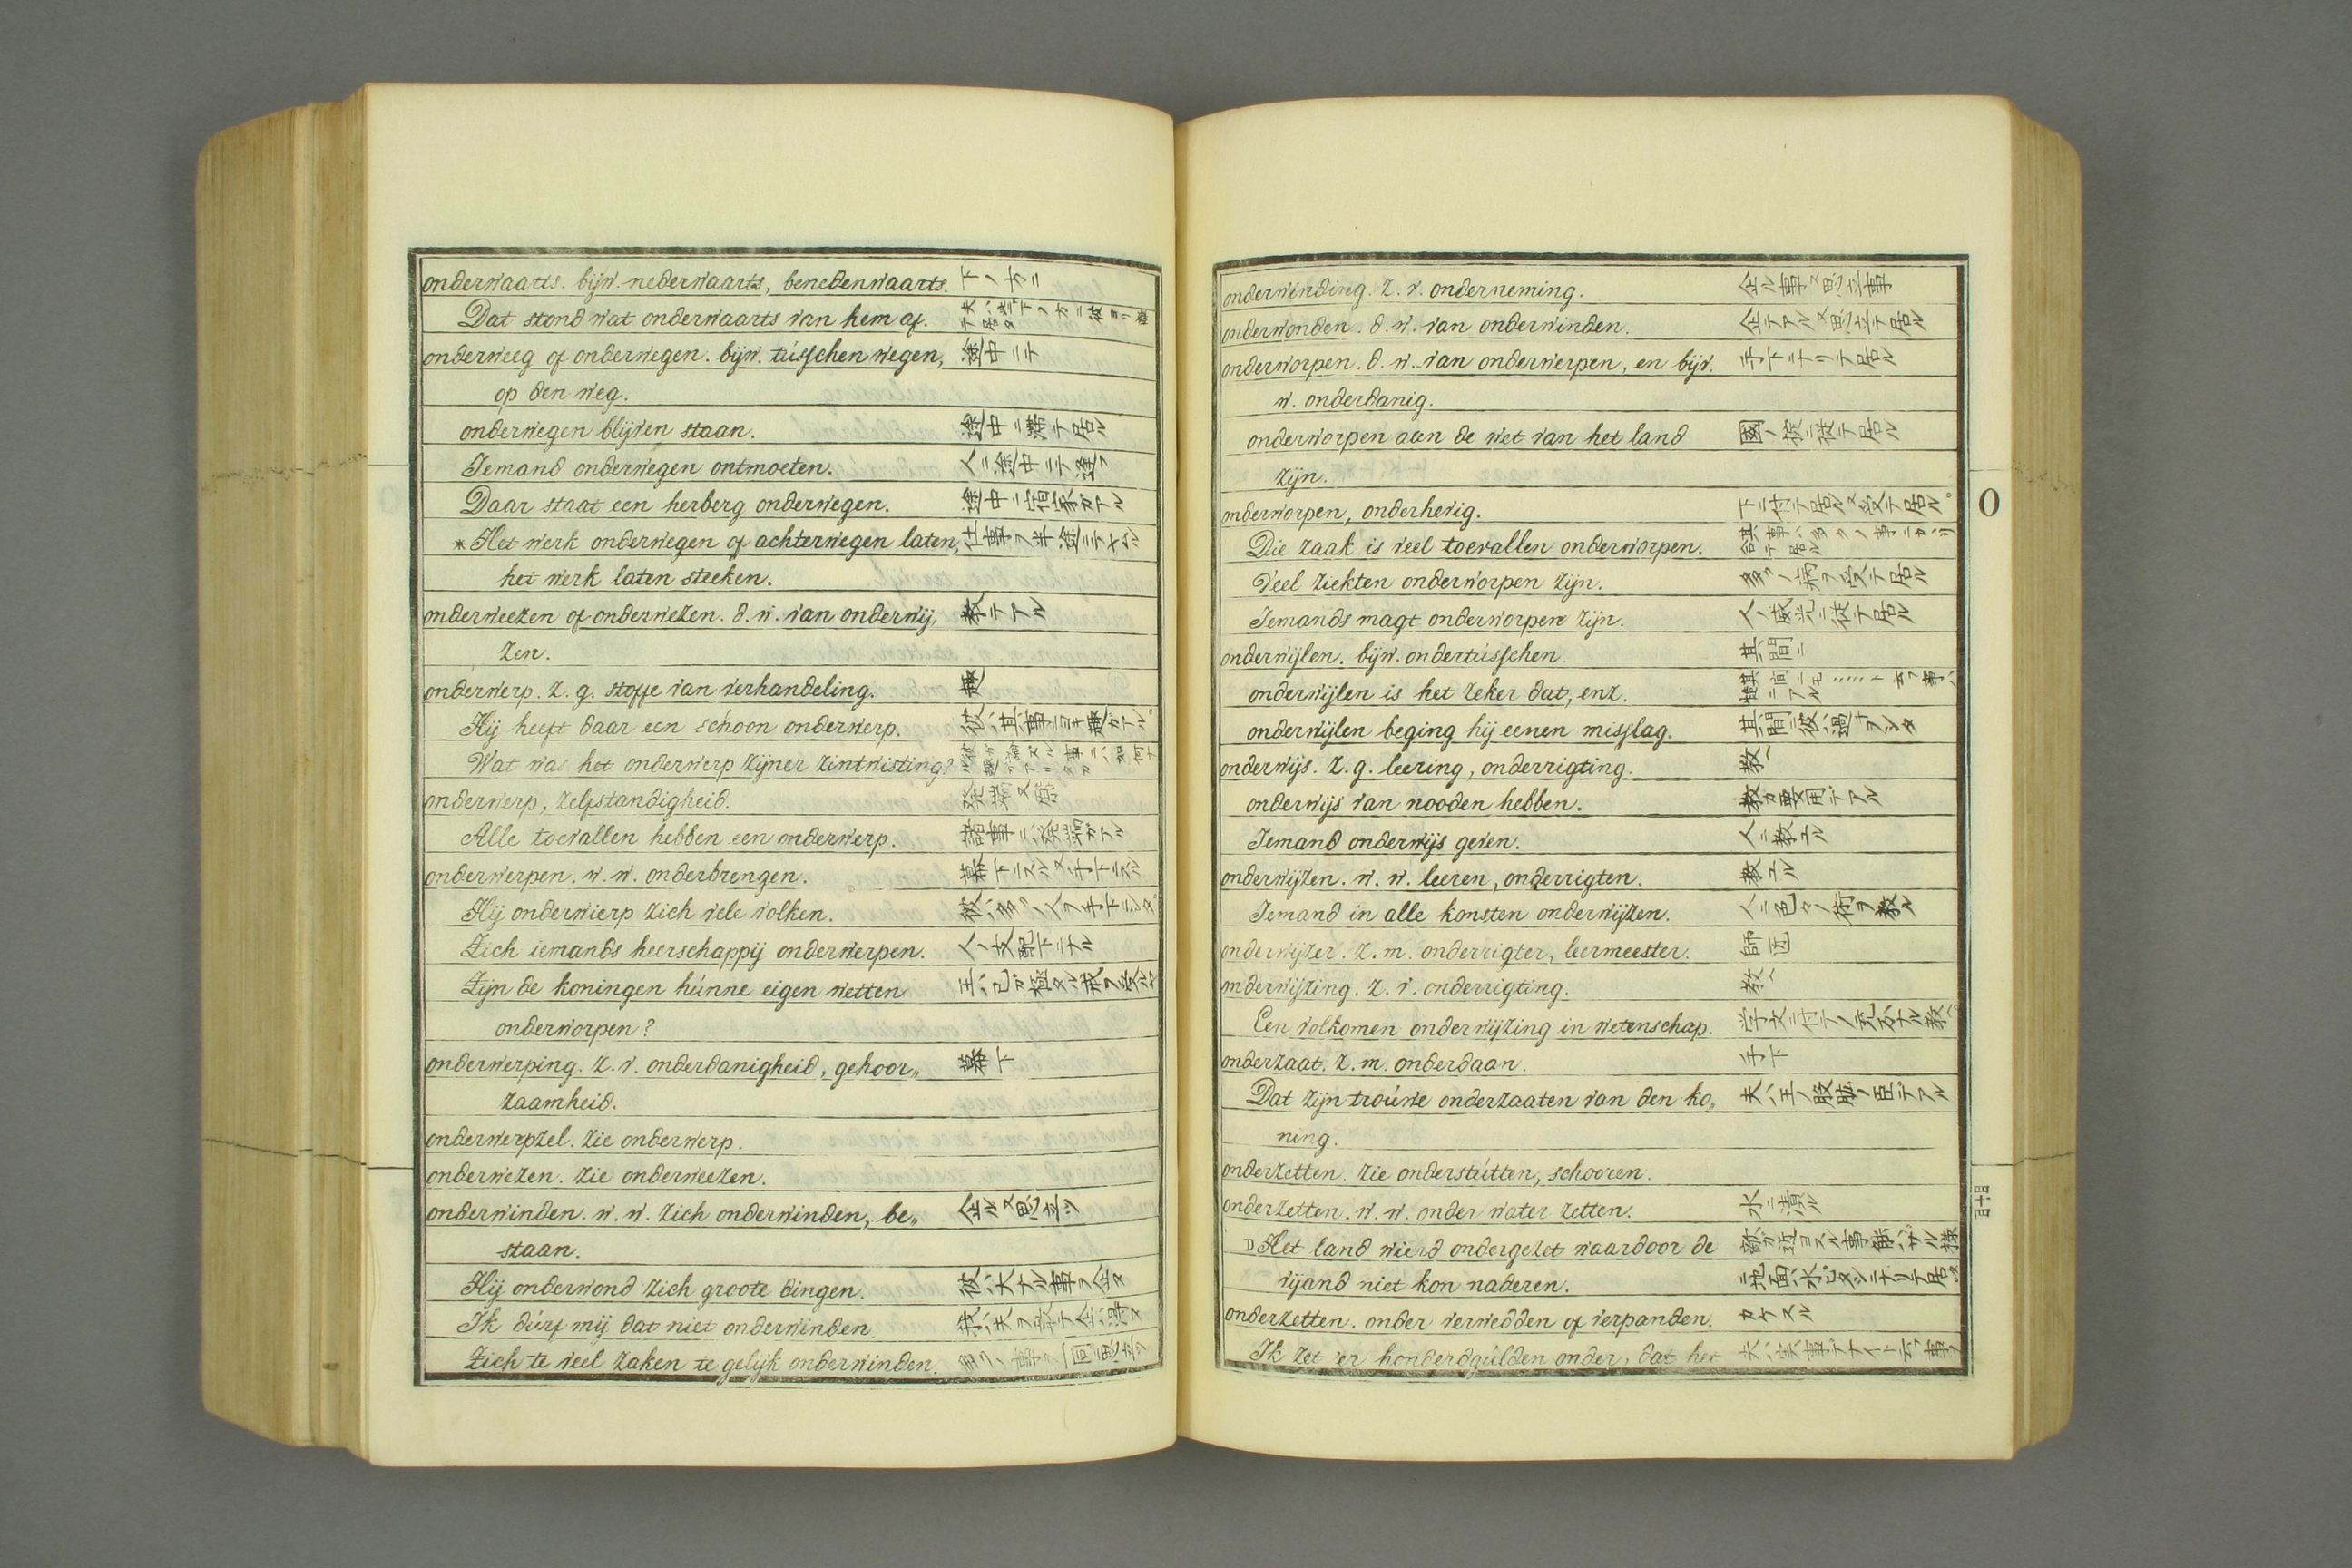 onderwaarts. bijw. nederwaarts, benedenwaarts. 下ノ方ニ
Dat stond wat onderwaarts van hem af.
onderweeg of onderwegen. bijw. tússchen wegen, 途中ニテ
op den weg.
onderwegen blijven staan. 途中ニ滞テ居ル
Iemand onderwegen ontmoeten. 人ニ途中ニテ逢フ
Daar staat een herberg onderwegen. 途中ニ宿家ガアル
*Het werk onderwegen of achterwegen laten, 仕事ヲ半途ニテヤムル
het werk laten steeken.
onderweezen of onderwezen. d. w. van onderwij, 教テアル
zen.
onderwerp. z. g. stoffe van verhandeling. 趣
Hij heeft daar een schoon onderwerp.
Wat was het onderwerp zijner zintwisting?
onderwerp, zelfstandigheid.
Alle toevallen hebben een onderwerp. 諸事ニハ発端ガアル
onderwerpen. w. w. onderbrengen. 幕下ニスル又手下ニスル
Hij onderwierp zich vele volken. 彼ハ多クノ人ヲ手下ニシタ
Zich iemands heerschappij onderwerpen. 人ノ支配下ニナル
Zijn de koningen húnne eigen wetten
onderworpen?
onderwerping. z. v. onderdanigheid, gehoor„ 幕下
zaamheid.
onderwerpzel. zie onderwerp.
onderwezen. zie onderweezen.
onderwinden. w. w. zich onderwinden, be„ 企ル又思立ツ
staan.
Hij onderwond zich groote dingen. 彼ハ大ナル事ヲ企タ
Ik dúrf mij dat niet onderwinden.
Zich te veel zaken te gelijk onderwinden.
onderwinding. z. v. onderneming. 企ル事又思立事
onderwonden. d. w. van onderwinden. 企テアル又思立テ居ル
onderworpen. d. w. van onderwerpen, en bijv. 手下ニナリテ居ル
w. onderdanig.
onderworpen aan de wet van het land 國ノ掟ニ従テ居ル
zijn.
onderworpen, onderhevig. 下ニ付テ居ル又受テ居ル。
O
Die zaak is veel toevallen onderworpen.
Veel ziekten onderworpen zijn. 多クノ病ヲ受テ居ル
Iemands magt onderworpen zijn. 人ノ威光ニ従テ居ル
onderwijlen. bijw. ondertússchen. 其間ニ
onderwijlen is het zeker dat, enz.
onderwijlen beging hij eenen misslag. 其間ニ彼ハ過ヲナシタ
onderwijs. z. g. leering, onderrigting. 教ヘ
onderwijs van nooden hebben. 教ガ要用デアル
Iemand onderwijs geven. 人ニ教エル
onderwijzen. w. w. leeren, onderrigten. 教エル
Iemand in alle konsten onderwijzen. 人ニ色々ノ術ヲ教ル
onderwijzer. z. m. onderrigter, leermeester. 師匠
onderwijzing. z. v. onderrigting. 教ヘ
Een volkomen onderwijzing in wetenschap.
onderzaat. z. m. onderdaan. 手下
Dat zijn troúwe onderzaaten van den ko„ 夫ハ王ノ股肱ノ臣デアル
ning.
onderzetten. zie onderstútten, schooren.
onderzetten. w. w. onder water zetten. 水ニ漬ル
D Het land wierd ondergezet waardoor de
vijand niet kon naderen.
onderzetten. onder verwedden of verpanden. カケスル
Ik zet 'er honderdgúlden onder, dat het